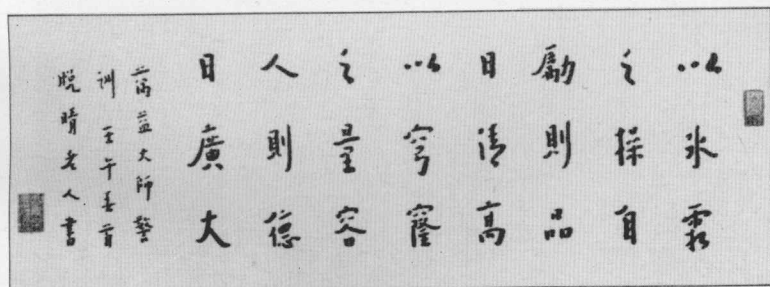 以冰霜
之操自
勵則品
日清高
以穹窿
之量容
人則德
日廣大
蕅益大師警
訓壬午春首
晚晴老人書